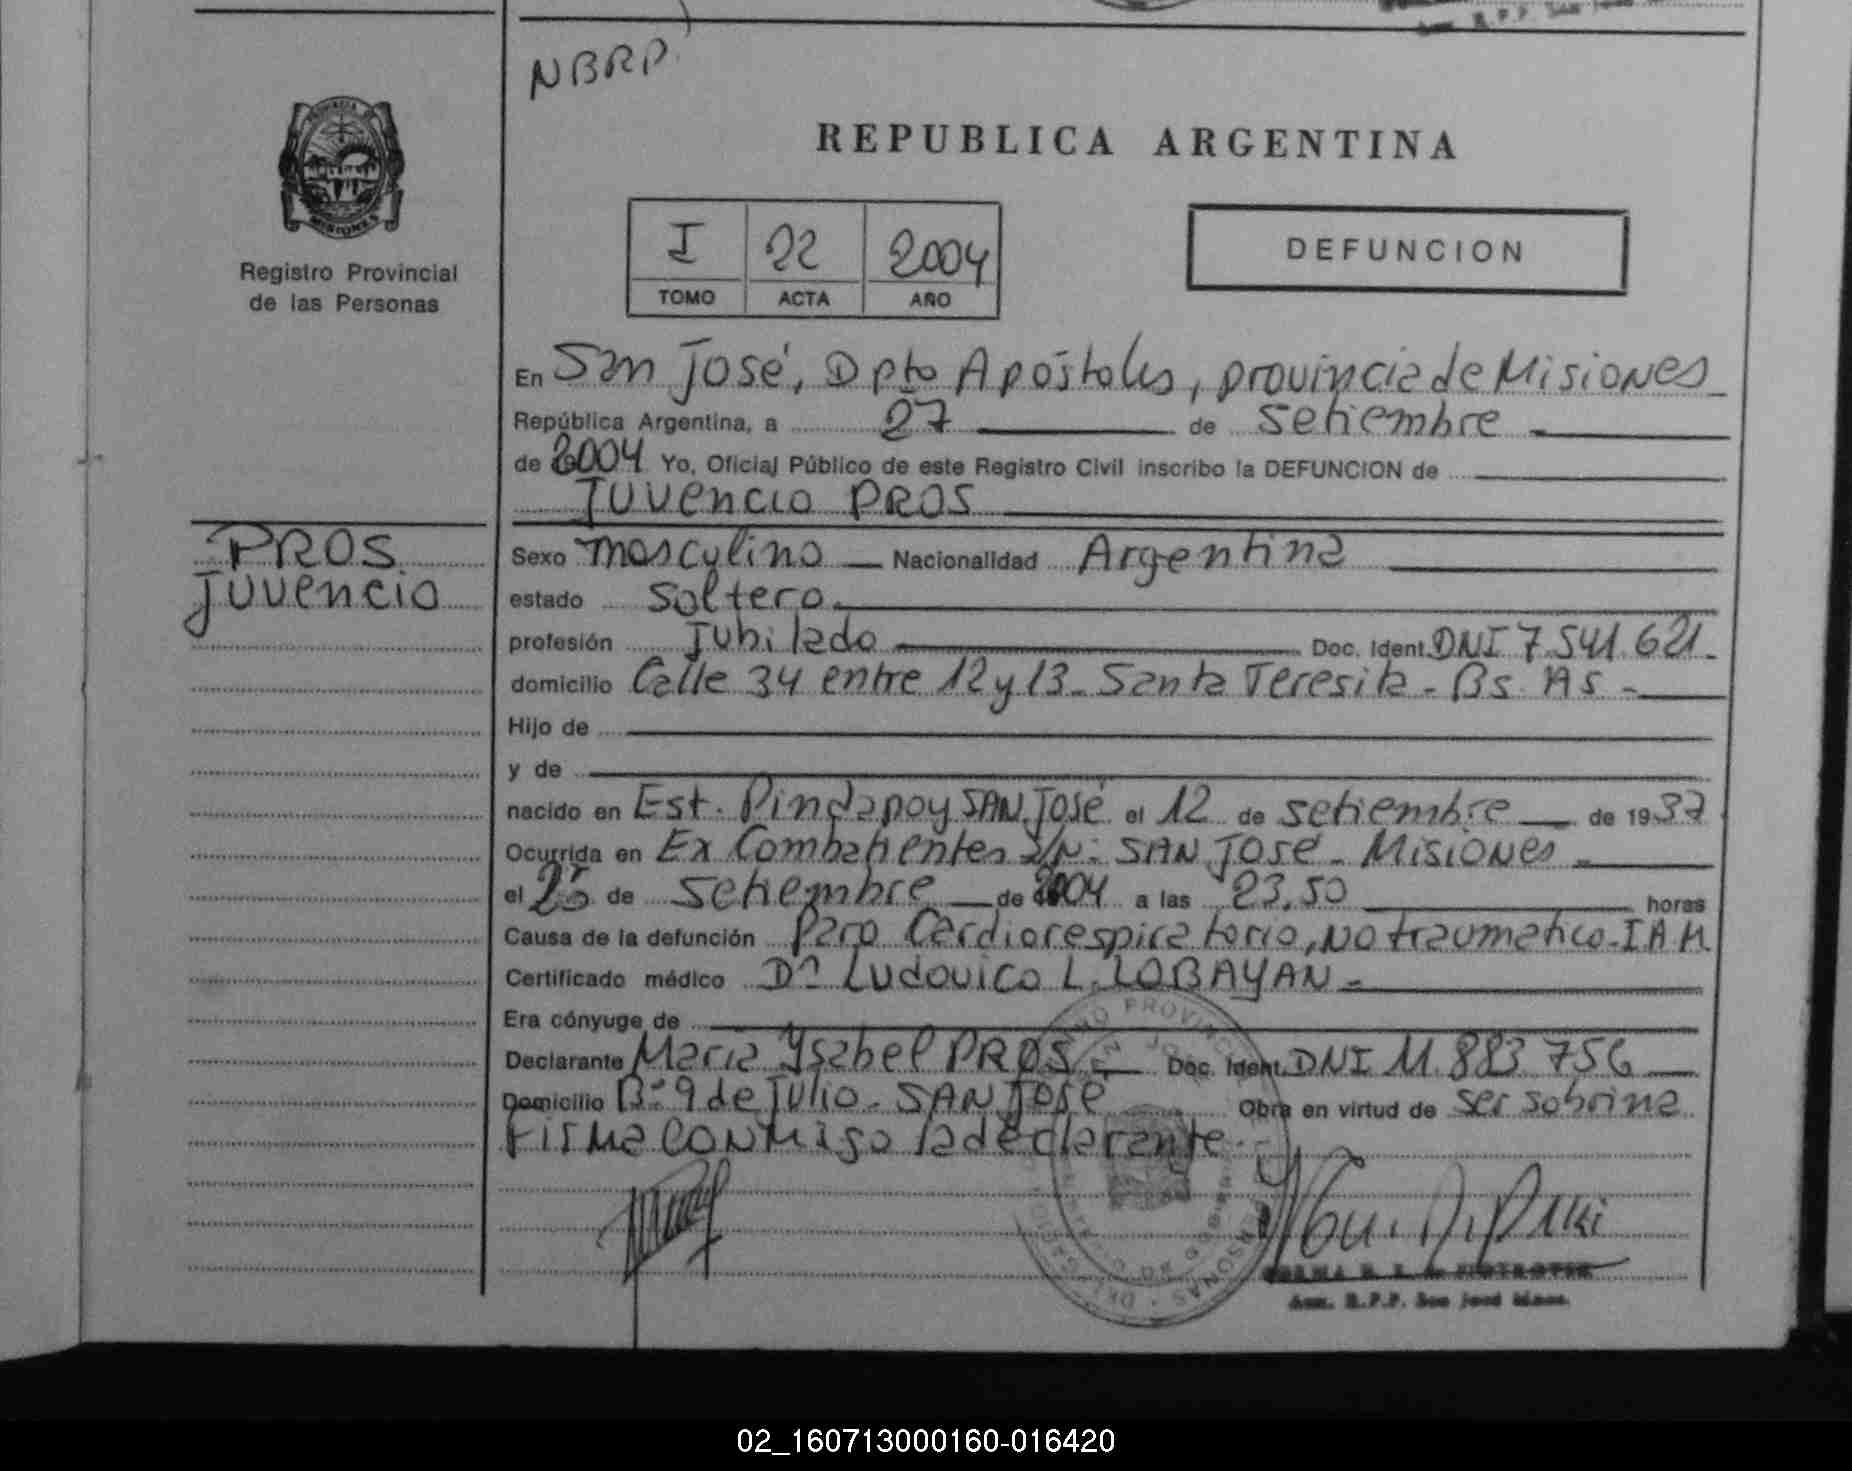 NBRP.
PROVINCIA DE
MISIONES
Registro Provincial
de las Personas
REPUBLICA ARGENTINA
I 22 2004
TOMO ACTA AÑO
DEFUNCION
En San José, Dpto Apóstoles, provincia de Misiones
República Argentina, a 27 de setiembre
de 2004 Yo, Oficial Público de este Registro Civil inscribo la DEFUNCION de
Juvencio PROS
PROS
Juvencio
Sexo masculino Nacionalidad Argentina
estado Soltero
profesión Jubilado Doc. Ident. DNI 7.541.621.
domicilio Calle 34 entre 12 y 13 - Santa Teresita - Bs. As -
Hijo de
y de
nacido en Est. Pindapoy SAN José el 12 de setiembre de 1937
Ocurrida en Ex Combatientes s/N- SAN José - Misiones -
el de setiembre de 2004 a las 23,50 horas
Causa de la defunción Paro Cardiorespiratorio, No traumatico - I A M.
Certificado médico Dr Ludovico L. LOBAYAN -
Era cónyuge de
Declarante Maria Ysabel PROS Doc. Ident. DNI 11.883 756
Domicilio Bº 9 de Julio - SAN José Obra en virtud de ser sobrina
Firma conmigo la declarante.
Aux. R.P.P. San José Mnes.
02_160713000160-016420